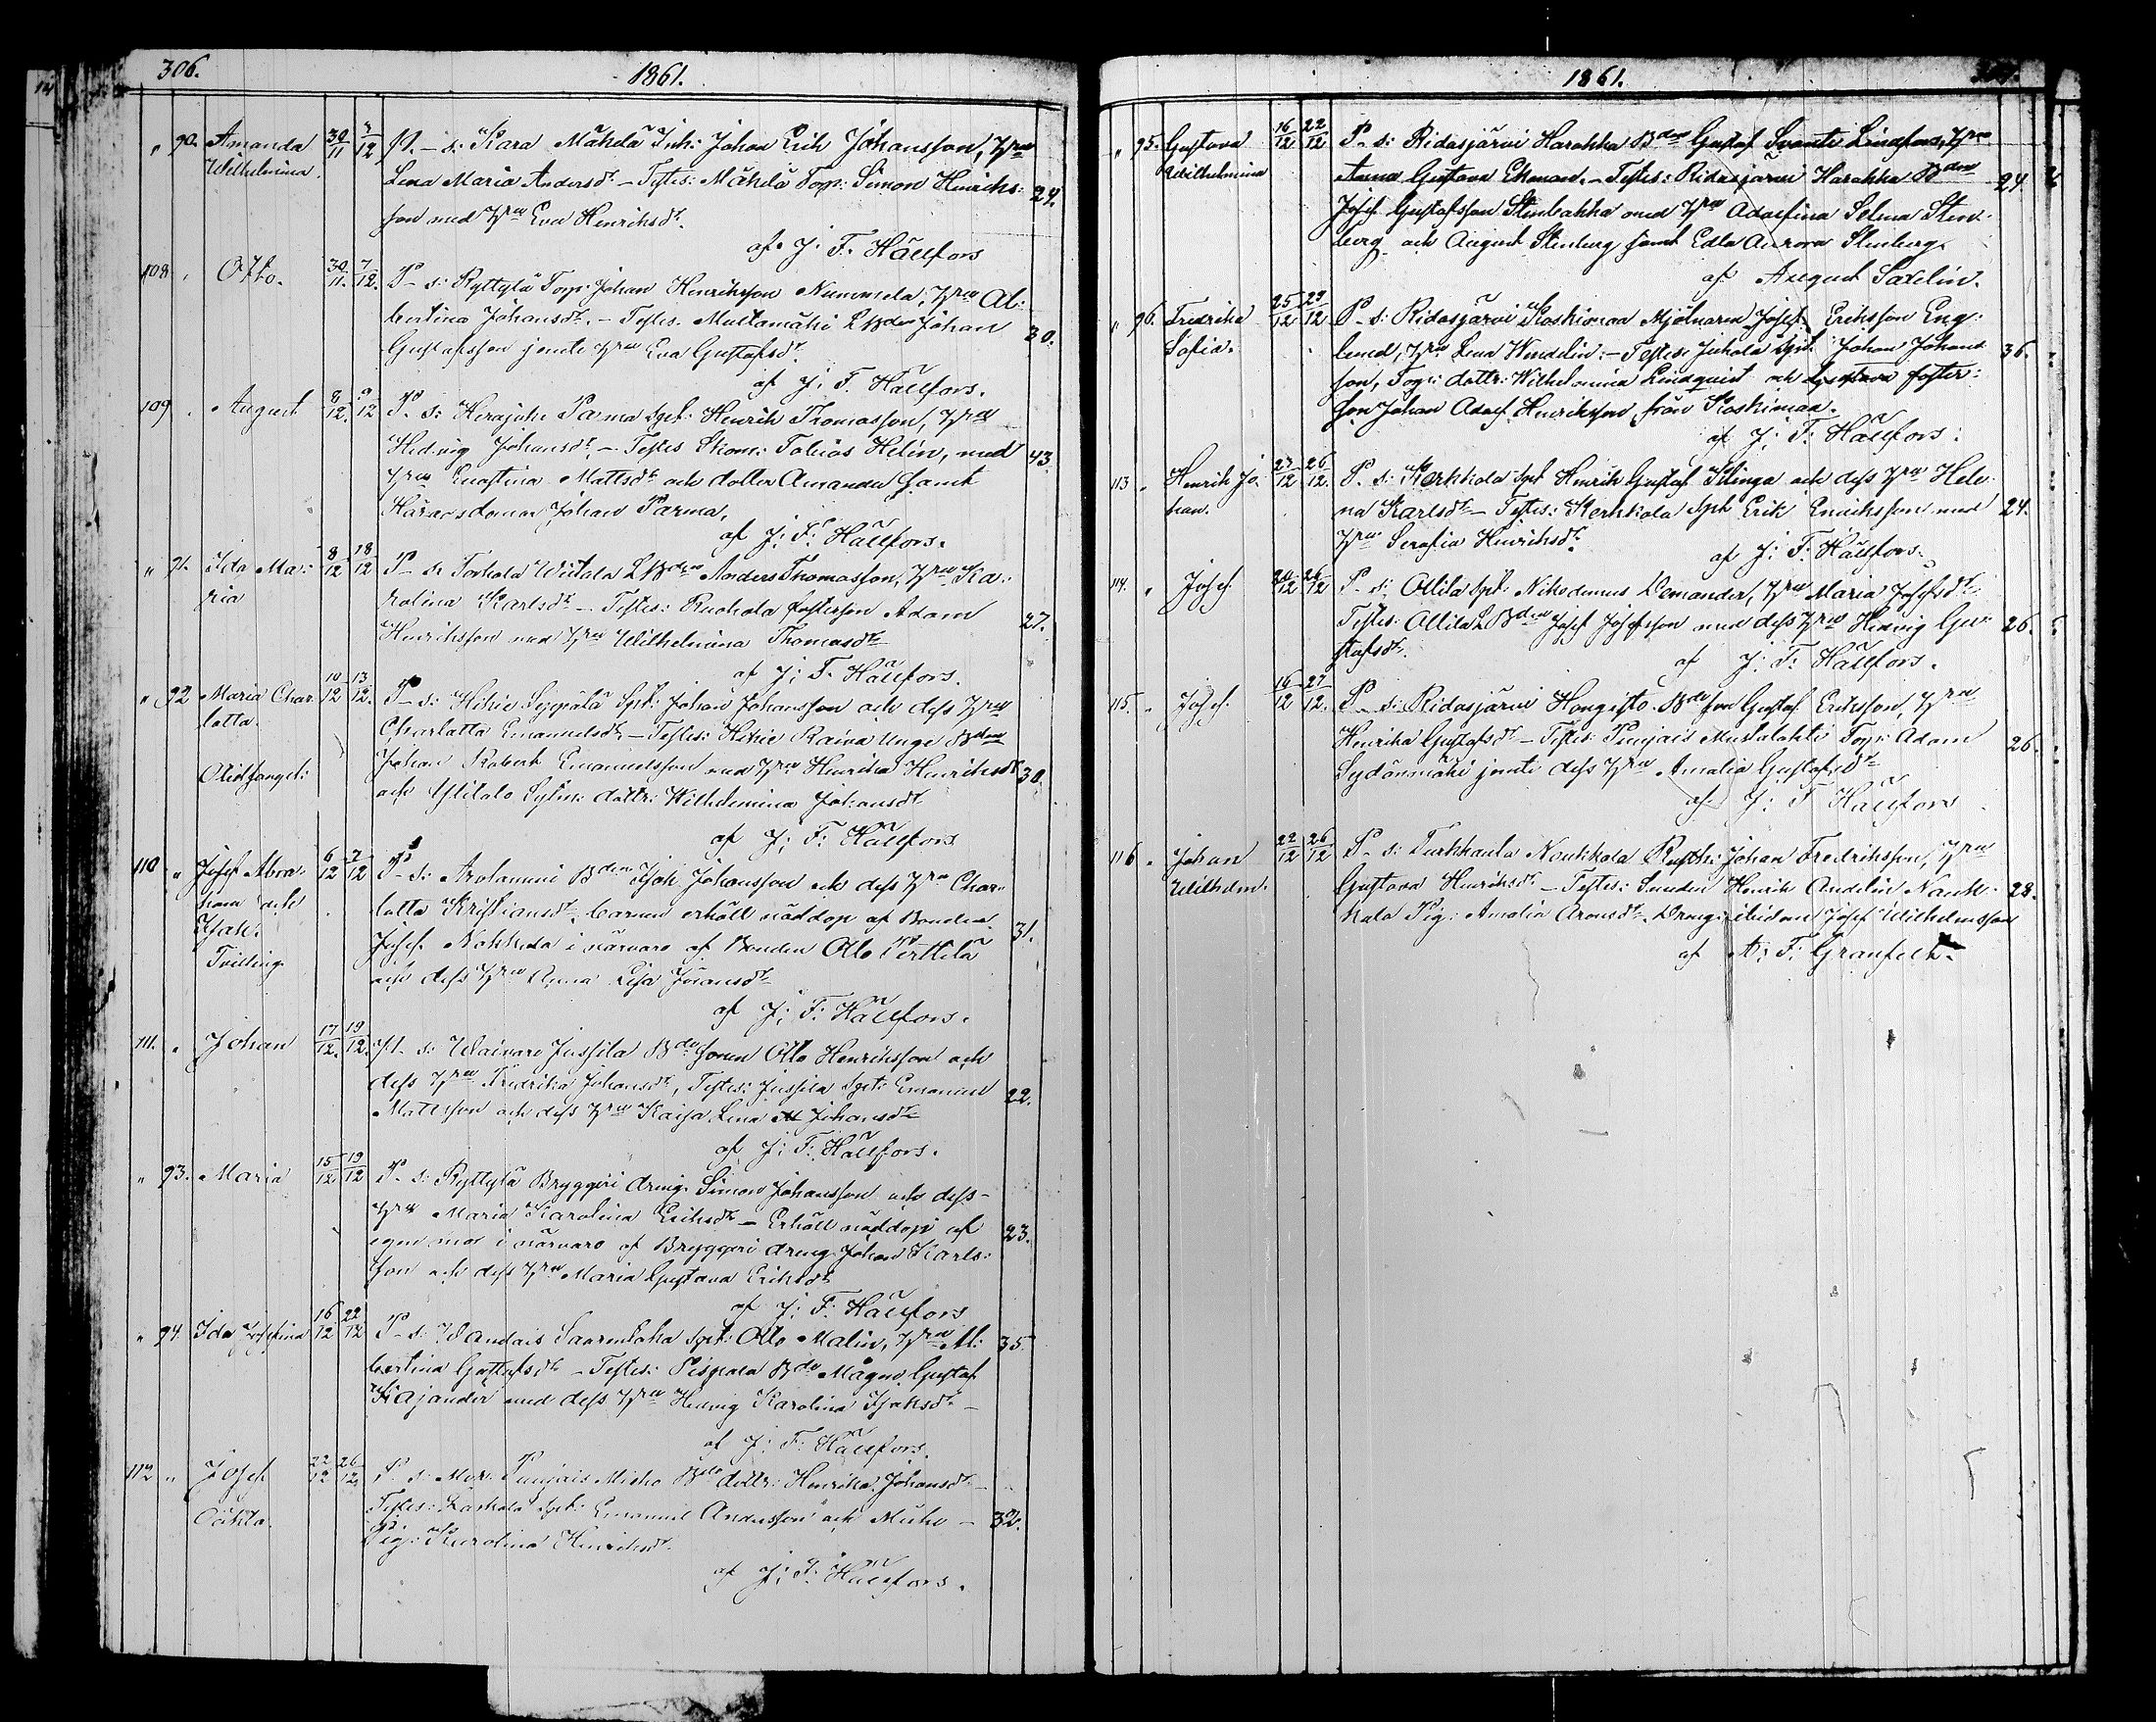 306.
1861.
" 90. Amanda 30/11 3/12 P. - s: Kara Mäkelä Inh: Johan Erik Johansson, Hru
Wilhelmina. Lena Maria Andersdr. - Testes: Mäkelä Torp: Simon Henriks: 24.
son med Hru Eva Henriksdr.
af J: F. Hällfors
108 " Otto. 30/11. 7/12. P - s: Ryttylä Torp: Johan Henriksson Nummela, Hru Al:
bertina Johansdr. - Testes. Multamäki LBden Johan 30.
Gustafsson jemte Hru Eva Gustafsdr.
af J: F. Hällfors.
109 . August 8/12. 9/12 P. s: Herajoki Parma Spt: Henrik Thomasson, Hru
Hedvig Johansdr. - Testes Ekon: Tobias Helin, med 43.
Hru Ernstina Mattsdr och dotter Amanda samt
Häradsdomar Johan Parma.
af J: F: Hällfors.
" 91. Ida Ma: 8/12 18/12 P - s: Torhola Wiitala LBden Anders Thomasson, Hru Ka:
ria rolina Karlsdr - Testes: Ruohola fosterson Adam 27.
Henriksson med Hru Wilhelmina Thomasdr
af J: F. Hällfors.
" 92 Maria Char 10/12 13/12. P - s: Hikie Seppälä Spt: Johan Johansson och dess Hru
lotta. Charlotta Emanuelsdr - Testes: Hikie Raiva Unge Bden
Oldfangel: Johan Robert Emanuelsson med Hru Henrika Henriksdr 30.
och Ylitalo Sytn: dottr: Wilhelmina Johansdr
af J: F: Hällfors
110 " Josef Abra- 6/12 7/12 P - s: Arolammi Bden Isak Johansson och dess Hru Char-
ham och lotta Kristiansdr. barnen erhöll nöddop af Bonden
Isak. Josef Nokkala i närvaro af Bonden Otto Perttilä 31.
Tvilling. och dess Hru Anna Lisa Jöransdr
af J: F: Hällfors.
111. . Johan 17/12. 19/12. P.l. s: Waivare Jussila Bdesonen Otto Henriksson och
dess Hru Fredrika Johansdr, Testes: Jussila Spt: Emanuel 22.
Mattsson och dess Hru Kaisa Lena Johansdr
af J: F: Hällfors.
" 93. Maria 15/12. 19/12 P - s: Ryttylä Bryggeri dreng. Simon Johansson och dess
Hru Maria Karolina Eriksdr - Erhöll nöddop af
egen mor i närvaro af Bryggeri dreng Johan Karls: 23.
son och dess Hru Maria Gustava Eriksdr
af J: F: Hällfors
" 94. Ida Josefina 16/12 22/12 P - s: Wantais Saarenkoha Spt: Otto Malin, Hru Al: 35
bertina Gustafsdr - Testes: Pispala Bde Mågen Gustaf
Kajander med dess Hru Hedvig Karolina Isaksdr -
af J: F: Hällfors.
112 " Josef 22/12 26/12. P. s: Mor: Punjais Micko Bde dottr: Henrika Johansdr -
Oäkta. Testes: Laskala Spt: Emanuel Andersson och Micko - 32.
Pig: Karolina Henriksdr.
af J: F: Hällfors.
1861.
" 95. Gustava 16/12 22/12 P - s: Ridasjärvi Harakka Bden Gustaf Svante Lindfors, Hru
Wilhelmina Anna Gustava Ekman. - Testes: Ridasjärvi Harakka Bden 24.
Josef Gustafsson Stenbakka med Hru Adolfina Selena Sten-
berg och August Stenberg samt Edla Aurora Stenberg.
af August Saxelin.
" 96. Fredrika 25/12 29/12 P - s: Ridasjärvi Koskimaa Mjölnaren Josef Eriksson Eng-
Sofia. lund, Hru Lena Wendelin: - Testes: Juhola Spt: Johan Johans 36.
son, Torp: dottr: Wilhelmina Lindquist och foster:
son Johan Adolf Henriksson från Koskimaa.
af J: F: Hällfors.
113 . Henrik Jo: 23/12 26/12. P. s: Kerkkola Spt Henrik Gustaf Klinga och dess Hru Hele
han. na Karlsdr - Testes: Kerkkola Spt Erik Eriksson med 24.
Hru Serafia Henriksdr.
af J: F: Hällfors.
114. " Josef 20/12 26/12 P - s: Ollila Spt: Nikodemus Wemander, Hru Maria Josefsdr
Testes: Ollila LBden Josef Josefsson med dess Hru Hedvig Gu- 26.
stafsdr.
af J: F: Hällfors.
115. " Josef. 16/12 27/12. P - s: Ridasjärvi Hongisto Bde son Gustaf Eriksson, Hru
Henrika Gustafsdr - Testes: Punjais Mustalahti Torp: Adam 26.
Sydänmäki jemte dess Hru Amalia Gustafsdr
af J: F Hällfors
116 . Johan 22/12 26/12 P - s: Turkhaula Noukkola Rusth: Johan Fredriksson, Hru
Wilhelm. Gustava Henriksdr - Testes: Smeden Henrik Andelin Nouk- 28.
kala Pig: Amalia Aronsdr. Dreng: Josef Wilhelmsson
af A: F: Granfelt.